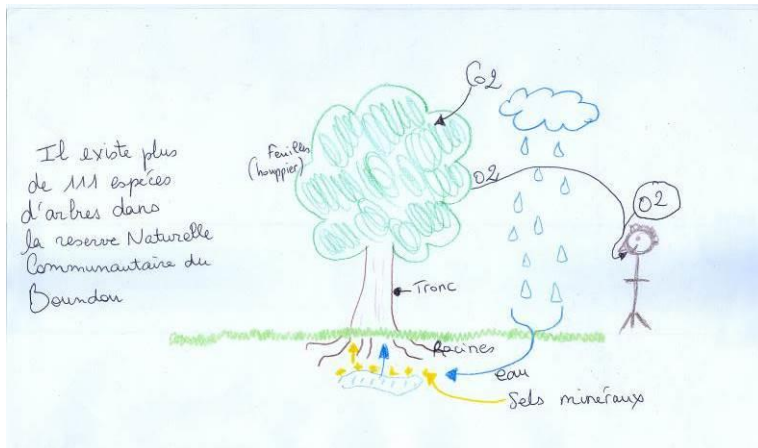 Il existe plus
de 111 espéces
d'arbres dans
la reserve Naturelle
Communautaire du
Boundou
Feuilles
(houppier)
CO2
O2
O2
Tronc
Racines
eau
Sels minéraux